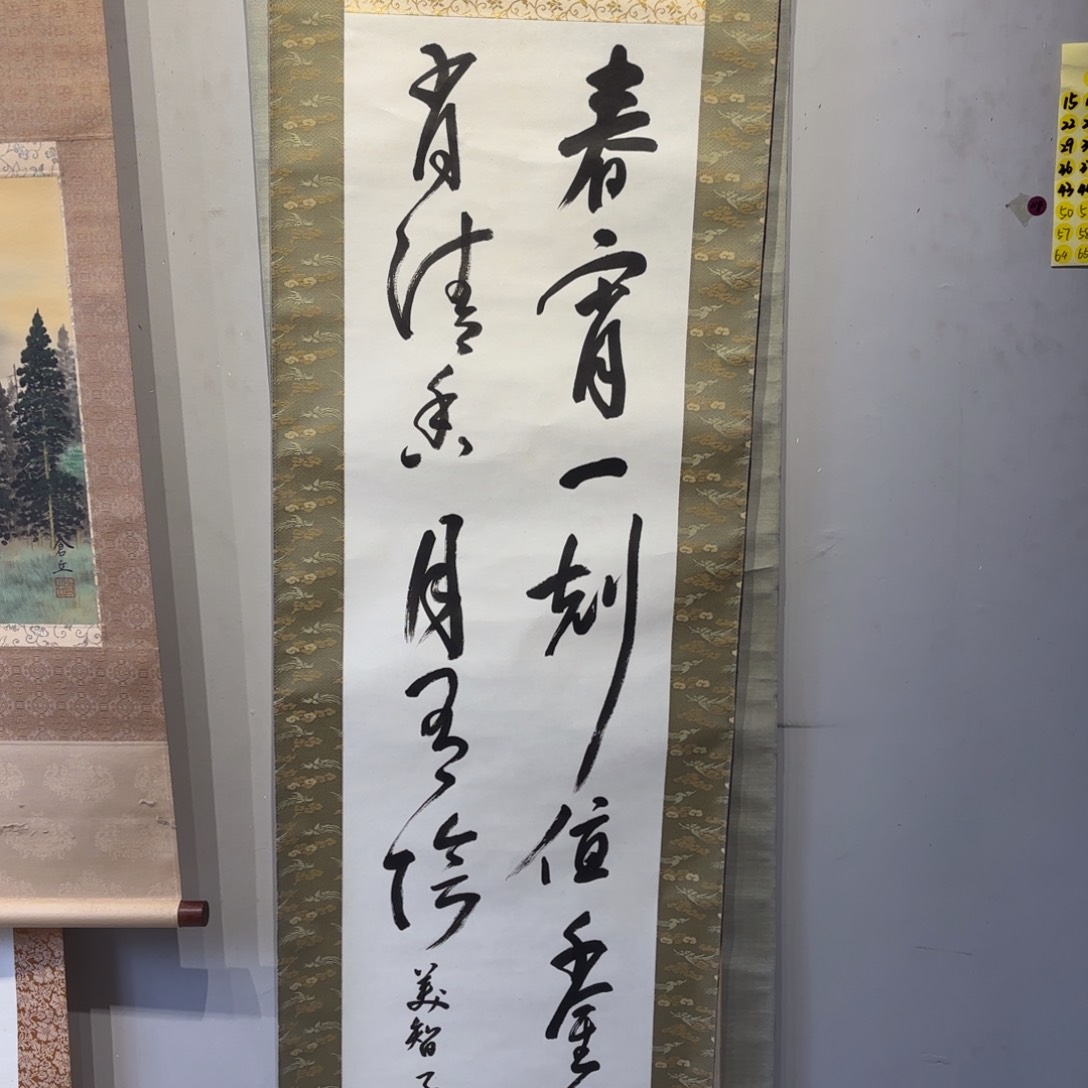 春宵一刻値千金
有清香月有陰
美智子
15
22
29
36
43
50
57 58
64 65